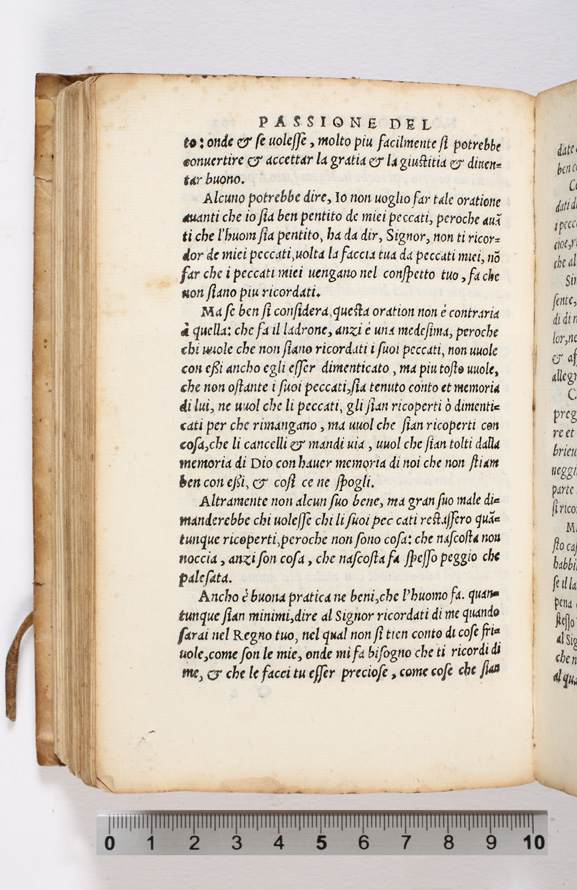 PASSIONE DEL
to: onde & se uolesse, molto piu facilmente si potrebbe
conuertire & accettar la gratia & la giustitia & diuen-
tar buono.
Alcuno potrebbe dire, Io non uoglio far tale oratione
auanti che io sia ben pentito de miei peccati, peroche auã
ti che l'huom sia pentito, ha da dir, Signor, non ti ricor-
dor de miei peccati, uolta la faccia tua da peccati miei, nõ
far che i peccati miei uengano nel conspetto tuo, fa che
non siano piu ricordati.
Ma se ben si considera questa oration non è contraria
à quella: che fa il ladrone, anzi è una medesima, peroche
chi uuole che non siano ricordati i suoi peccati, non uuole
con essi ancho egli esser dimenticato, ma piu tosto uuole,
che non ostante i suoi peccati, sia tenuto conto et memoria
di lui, ne uuol che li peccati, gli sian ricoperti ò dimenti-
cati per che rimangano, ma uuol che sian ricoperti con
cosa, che li cancelli & mandi uia, uuol che sian tolti dalla
memoria di Dio con hauer memoria di noi che non stiam
ben con essi, & così ce ne spogli.
Altramente non alcun suo bene, ma gran suo male di-
manderebbe chi uolesse chi li suoi pec cati restassero quã-
tunque ricoperti, peroche non sono cosa: che nascosta non
noccia, anzi son cosa, che nascosta fa spesso peggio che
palesata.
Ancho è buona pratica ne beni, che l'huomo fa. quan-
tunque sian minimi, dire al Signor ricordati di me quando
sarai nel Regno tuo, nel qual non si tien conto di cose fri-
uole, come son le mie, onde mi fa bisogno che ti ricordi di
me, & che le facci tu esser preciose, come cose che sian
date
ben
dati d
i pecc
cioe,
che al
Sin
sente,
di di
lor, ne
&
allegr
preg
re et
brieu
ueggi
parte
si rico
M
sto ca
habbi
se il la
pena
stesso
al Sig
che n
al qua
0 1 2 3 4 5 6 7 8 9 10